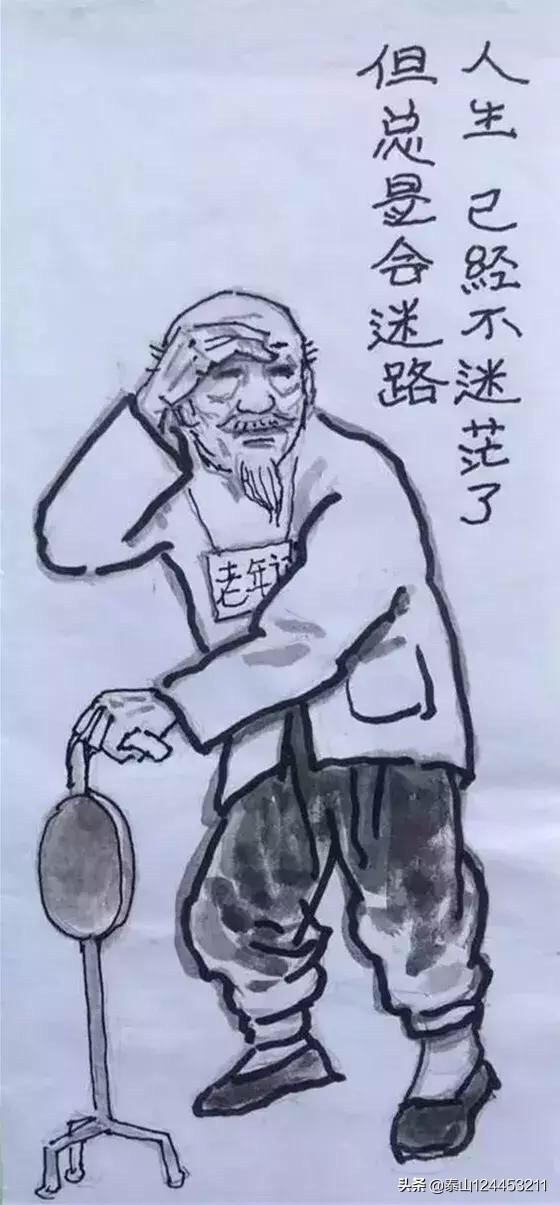 人生 已经不迷茫了
但总是会迷路
老年
头条 @泰山124453211